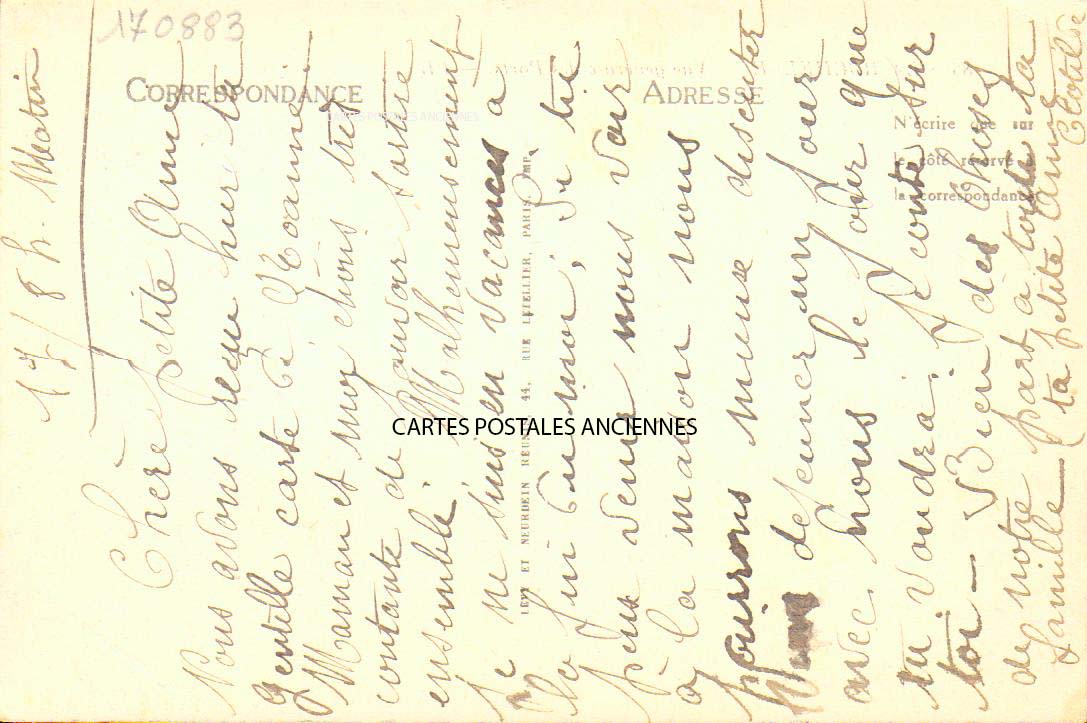 170883
CORRESPONDANCE
ADRESSE
N'écrire que sur
le côté réservé à
la correspondance
CARTES POSTALES ANCIENNES
CARTES POSTALES ANCIENNES
LÉVY ET NEURDEIN RÉUNIS, 44, RUE LETELLIER, PARIS, IMP.
17/ 8 h. Matin
Chère petite Amie
Nous avons reçu hier ta
gentille carte et
Maman et moi étions très
contante de pouvoir sortire
ensemble. Malheureusement
je ne suis en vacances a
qu
peux venir nous voir
a la maison nous
pourrons mieux discuter
dejeuner un jour
avec nous le jour que
tu voudra. je conte sur
toi — Bien des choses
de notre part a toute ta
famille — ta petite amie Clotilde